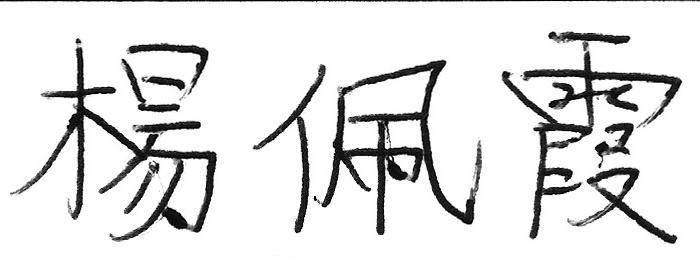 楊佩霞